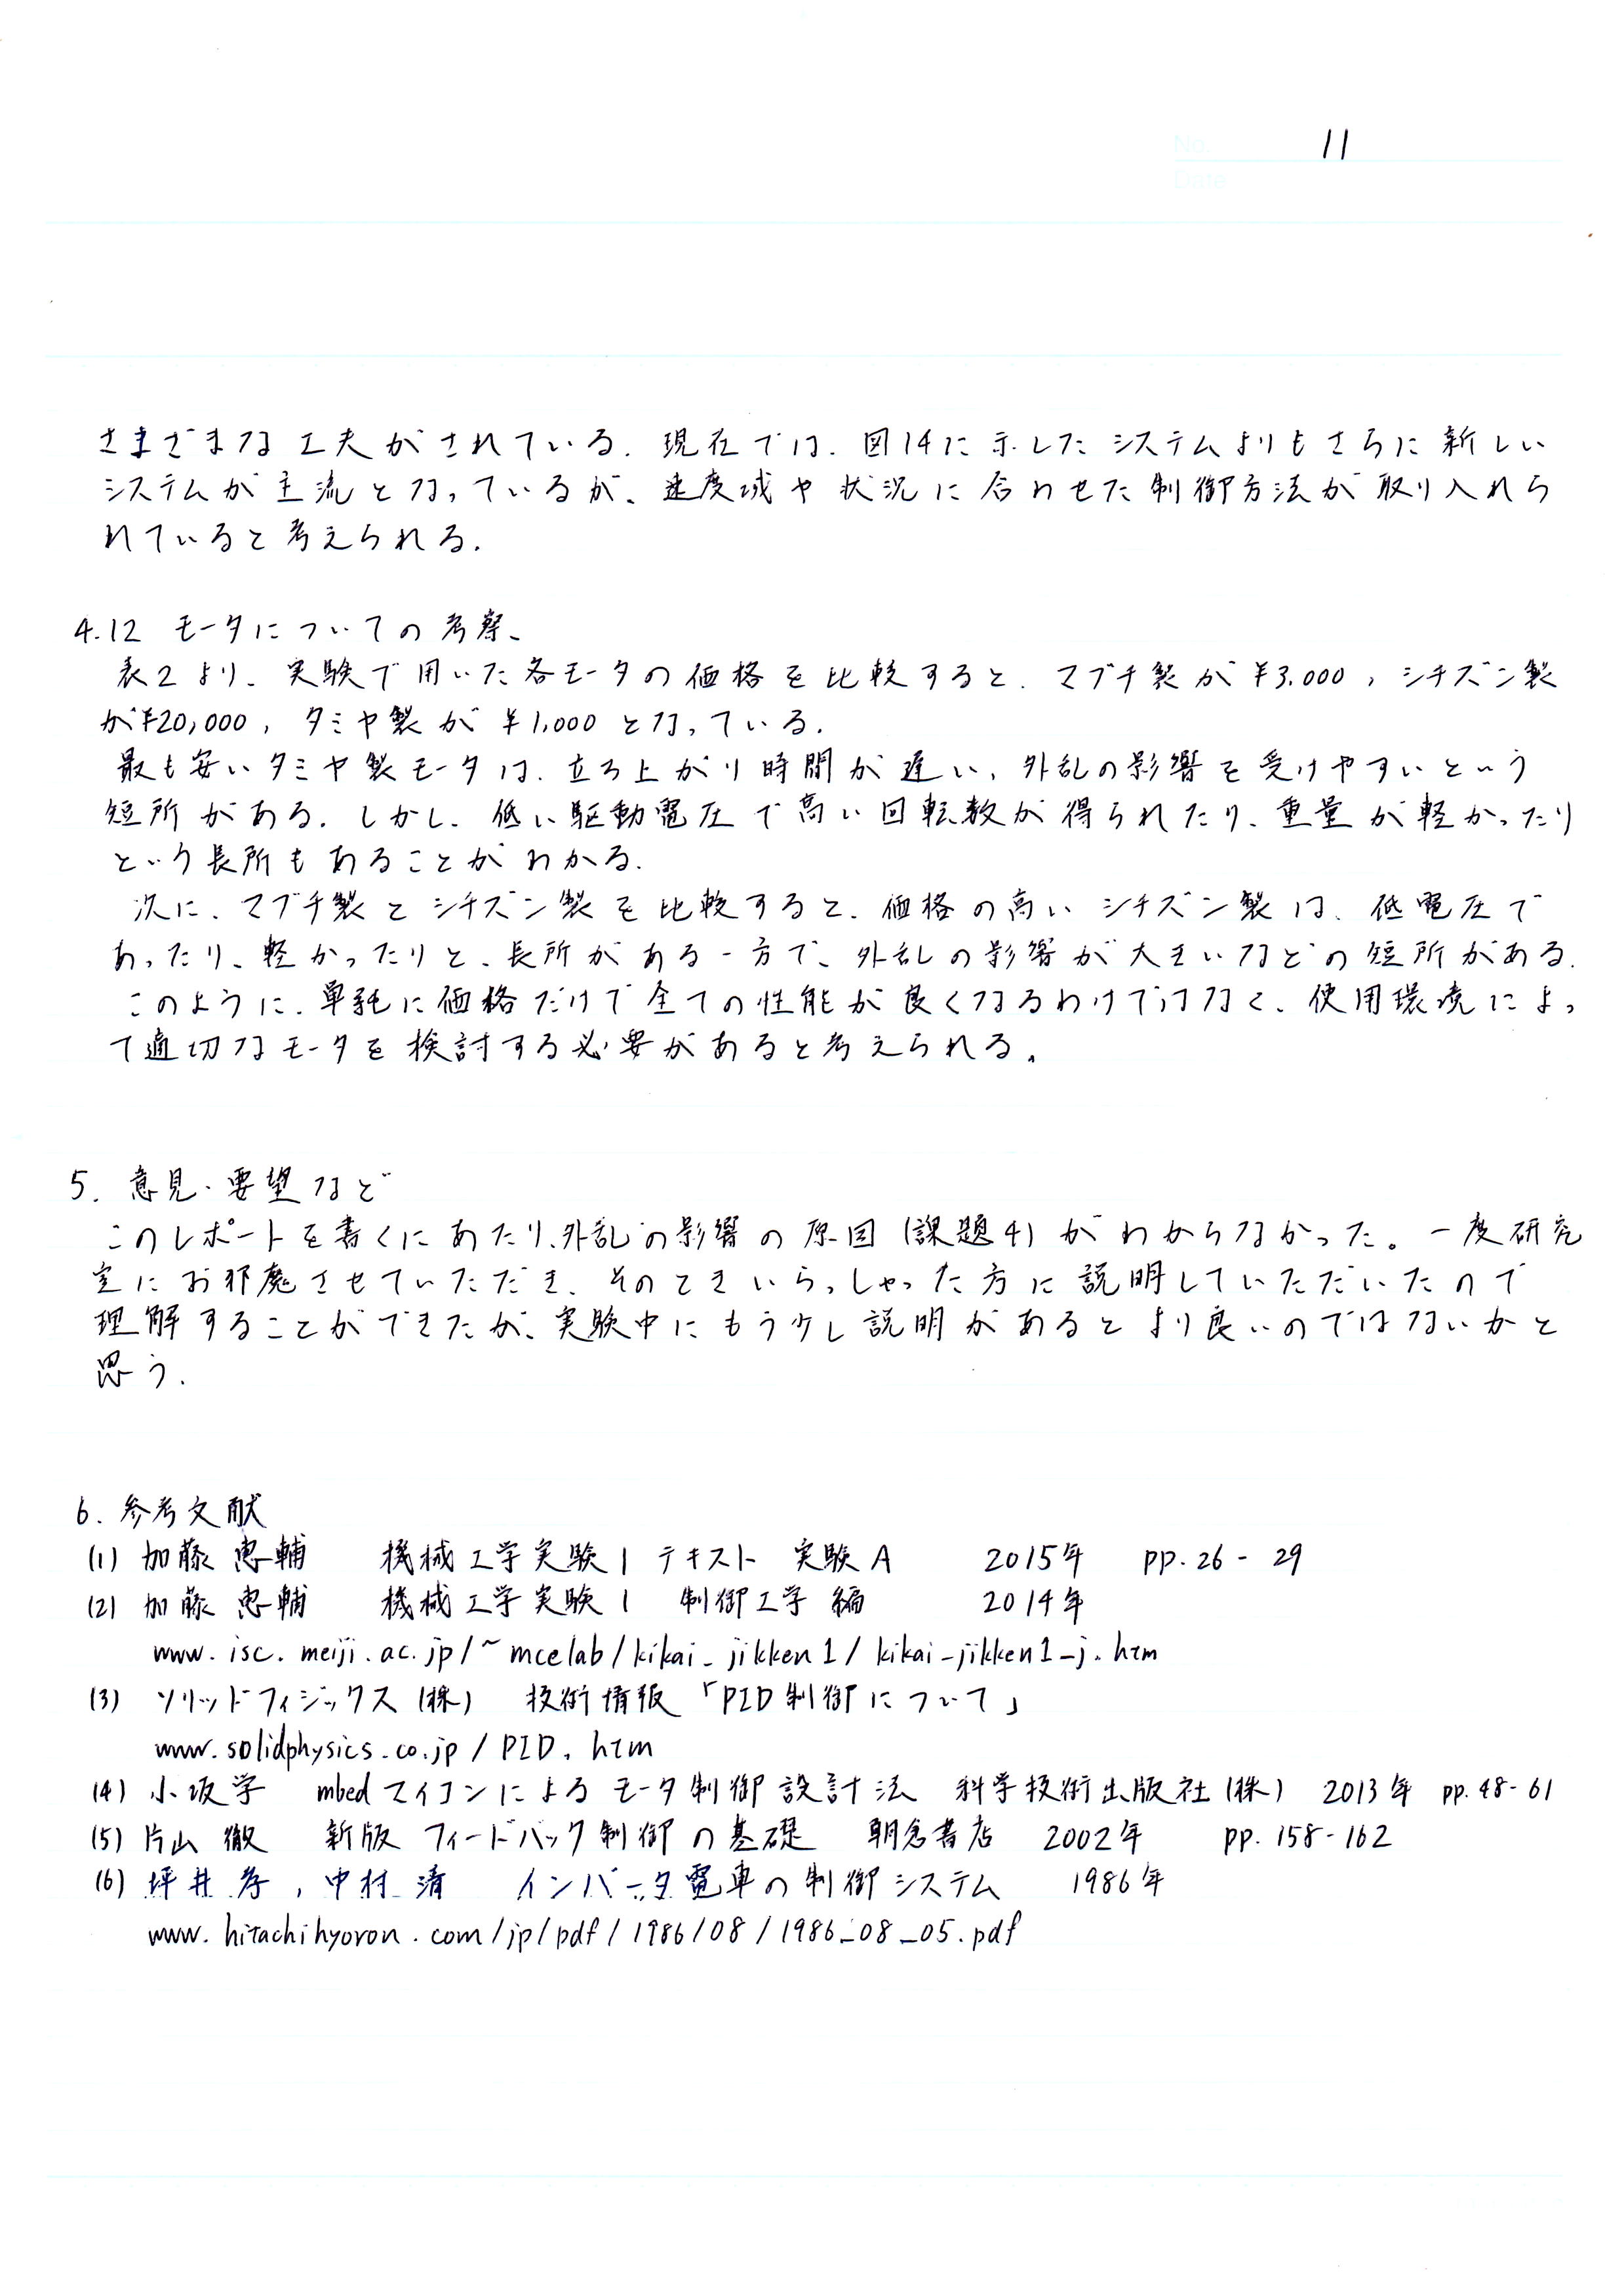 No. 11
Date
さまざまな工夫がされている. 現在では, 図14に示したシステムよりもさらに新しい
システムが主流となっているが、速度域や状況に合わせた制御方法が取り入れら
れていると考えられる.
4.12 モータについての考察、
表2より、実験で用いた各モータの価格を比較すると、マブチ製が¥3,000, シチズン製
が¥20,000, タミヤ製が ¥1,000 となっている.
最も安いタミヤ製モータは、立ち上がり時間が遅い、外乱の影響を受けやすいという
短所がある. しかし、低い駆動電圧で高い回転数が得られたり、重量が軽かったり
という長所もあることがわかる.
次に、マブチ製とシチズン製を比較すると、価格の高いシチズン製は、低電圧で
あったり、軽かったりと、長所がある一方で、外乱の影響が大きいなどの短所がある.
このように、単純に価格だけで全ての性能が良くなるわけではなく、使用環境によっ
て適切なモータを検討する必要があると考えられる。
5. 意見・要望など
このレポートを書くにあたり、外乱の影響の原因(課題4)がわからなかった。一度研究
室にお邪魔させていただき、そのときいらっしゃった方に説明していただいたので
理解することができたが、実験中にもう少し説明があるとより良いのではないかと
思う.
6. 参考文献
(1) 加藤 恵輔 機械工学実験1 テキスト 実験A 2015年 pp.26-29
(2) 加藤 恵輔 機械工学実験1 制御工学編 2014年
www.isc.meiji.ac.jp/~mcelab/kikai_jikken1/kikai_jikken1_j.htm
(3) ソリッドフィジックス(株) 技術情報「PID制御について」
www.solidphysics.co.jp/PID.htm
(4) 小坂学 mbedマイコンによるモータ制御設計法 科学技術出版社(株) 2013年 pp.48-61
(5) 片山 徹 新版 フィードバック制御の基礎 朝倉書店 2002年 pp.158-162
(6) 坪井 孝, 中村 清 インバータ電車の制御システム 1986年
www.hitachihyoron.com/jp/pdf/1986/08/1986_08_05.pdf